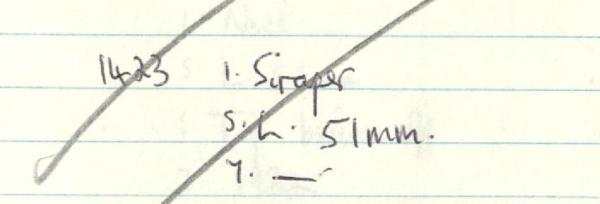 1423 1. Scraper
5. L. 51mm.
7. —